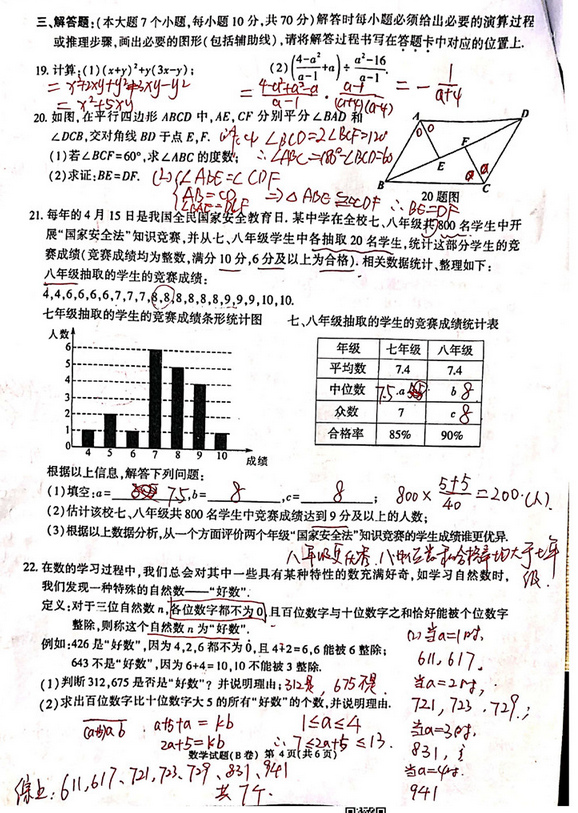 三、解答题:(本大题7个小题,每小题10分,共70分)解答时每小题必须给出必要的演算过程
或推理步骤,画出必要的图形(包括辅助线),请将解答过程书写在答题卡中对应的位置上.
19. 计算:(1)(x+y)²+y(3x-y);
(2)(4-a²/a-1+a)÷a²-16/a-1.
= x²+2xy+y²+3xy-y²
= x²+5xy
= 4-a²+a²-a/a-1 · a-1/(a+4)(a-4) = -1/a+4
20. 如图,在平行四边形ABCD中,AE,CF分别平分∠BAD和
∠DCB,交对角线BD于点E,F.
∠BCD=2∠BCF=120°
(1)若∠BCF=60°,求∠ABC的度数;
∴∠ABC=180°-∠BCD=60
(2)求证:BE=DF.
(2) { ∠ABE=∠CDF
AB=CD
∠BAE=∠DCF
⇒ △ABE≌△CDF ∴BE=DF
A D O O E F B C a a
20题图
21. 每年的4月15日是我国全民国家安全教育日. 某中学在全校七、八年级共800名学生中开
展“国家安全法”知识竞赛,并从七、八年级学生中各抽取20名学生,统计这部分学生的竞
赛成绩(竞赛成绩均为整数,满分10分,6分及以上为合格). 相关数据统计、整理如下:
八年级抽取的学生的竞赛成绩:
4,4,6,6,6,6,7,7,7,8,8,8,8,8,8,9,9,9,10,10.
七年级抽取的学生的竞赛成绩条形统计图
七、八年级抽取的学生的竞赛成绩统计表
人数
6
5
4
3
2
1
0
4 5 6 7 8 9 10 成绩
年级 七年级 八年级
平均数 7.4 7.4
中位数 7.5 a b 8
众数 7 c 8
合格率 85% 90%
根据以上信息,解答下列问题:
(1)填空:a= 7.5 ,b= 8 ,c= 8 ;
800×5+5/40=200(人)
(2)估计该校七、八年级共800名学生中竞赛成绩达到9分及以上的人数;
(3)根据以上数据分析,从一个方面评价两个年级“国家安全法”知识竞赛的学生成绩谁更优异.
八年级更优秀. 八中位数和合格率均大于七年
级.
22. 在数的学习过程中,我们总会对其中一些具有某种特性的数充满好奇,如学习自然数时,
我们发现一种特殊的自然数——“好数”.
定义:对于三位自然数n,各位数字都不为0,且百位数字与十位数字之和恰好能被个位数字
整除,则称这个自然数n为“好数”.
例如:426是“好数”,因为4,2,6都不为0,且4+2=6,6能被6整除;
643不是“好数”,因为6+4=10,10不能被3整除.
(1)判断312,675是否是“好数”?并说明理由;
312是, 675不是
(2)求出百位数字比十位数字大5的所有“好数”的个数,并说明理由.
(a+5)ab
a+5+a=kb
2a+5=kb
1≤a≤4
∴7≤2a+5≤13.
当a=1时,
611,617.
当a=2时,
721,723,729.;
当a=3时,
831,;
当a=4时.
941
数学试题(B卷) 第4页(共6页)
综上:611,617、721,723、729、831、941
共7个.